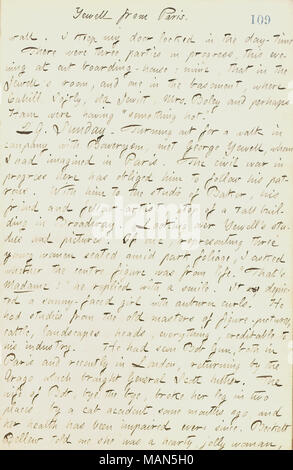 Yewell from Paris.
109
wall. I keep my door locked in the day-time.
There were three parties in progress, this eve-
ning at our boarding-house: mine, that in the
Jewell's room, and one in the basement, where
Cahill, Softly, old Jewitt, Mrs. Boley and perhaps
were having "something hot."
29. Sunday. Turning out for a walk in
company with Bowerym, met George Yewell, whom
I had imagined in Paris. The civil war in
progress here has obliged him to follow his pat-
rons. With him to the studio of Baker, his
friend and fellow artist, atop of a tall buil-
ding in Broadway. Looking over Yewell's stu-
dies and pictures. Of one representing three
young women seated amid park foliage, I asked
whether the centre figure was from life. "That's
Madame!" he replied with a smile. It depicted
a sunny-faced girl with auburn curls. He
had studies from the old masters of figure-pictures,
cattle, landscapes, heads, everything creditable to
his industry. He had seen Bob Gun, both in
Paris and recently in London, returning by the
Arago which brought General Scott hither. The
wife of Bob, bye the bye, broke her leg in two
places by a cab accident some months ago and
her health has been impaired ever since. Beckett
Bellew told me she was a hearty jolly woman,
alamy
Image ID: MAN5H0
www.alamy.com